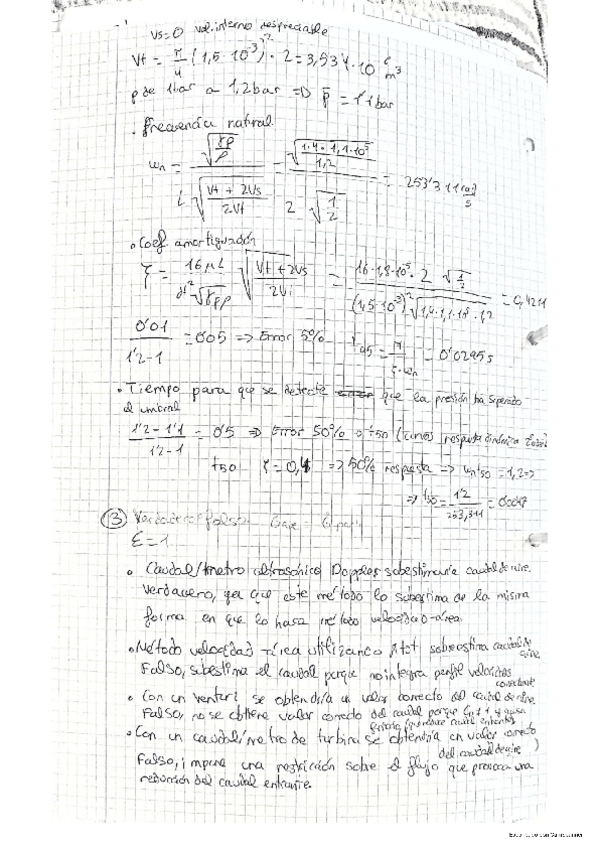 Vs=0 vol. interno despreciable
Vt = π/4 (1,5·10⁻³)² · 2 = 3,534·10⁻⁶ m³
p de 1bar a 1,2bar => p̄ = 1'1bar
· Frecuencia natural
ωn = √(γp/ρ) / (L √((Vt + 2Vs)/2Vt)) = √(1,4·1,1·10⁵/1,2) / (2 √(1/2)) = 253'311 rad/s
· Coef. amortiguación
ζ = 16μL/(d²√(γpρ)) √((Vt + 2Vs)/2Vt) = 16·1,8·10⁻⁵·2 √(1/2) / ((1,5·10⁻³)² √(1,4·1,1·10⁵·1,2)) = 0,4211
0'01/(1'2-1) = 0'05 => Error 5% t95 = π/(ζ·ωn) = 0'0295s
· Tiempo para que se detecte que la presión ha superado
el umbral
(1'2-1'1)/(1'2-1) = 0'5 => Error 50% => t50 (curvas respuesta dinámica
t50 ζ=0,4 => 50% respuesta => ωn t50 = 1,2 =>
=> t50 = 1'2/253,311 = 0'0047
③ Verdadero falso
ε=1
· Caudalímetro ultrasónico Doppler subestimaría caudal de aire.
Verdadero, ya que este método lo subestima de la misma
forma en que lo hace método velocidad-área.
· Método velocidad-área utilizando Pitot sobreestima caudal de aire
Falso, subestima el caudal porque no integra perfil velocidades
· Con un venturi se obtendría un valor correcto del caudal de aire.
Falso, no se obtiene valor correcto del caudal porque
· Con un caudalímetro de turbina se obtendría un valor correcto
del caudal de aire
Falso, impone una restricción sobre el flujo que provoca una
reducción del caudal entrante.